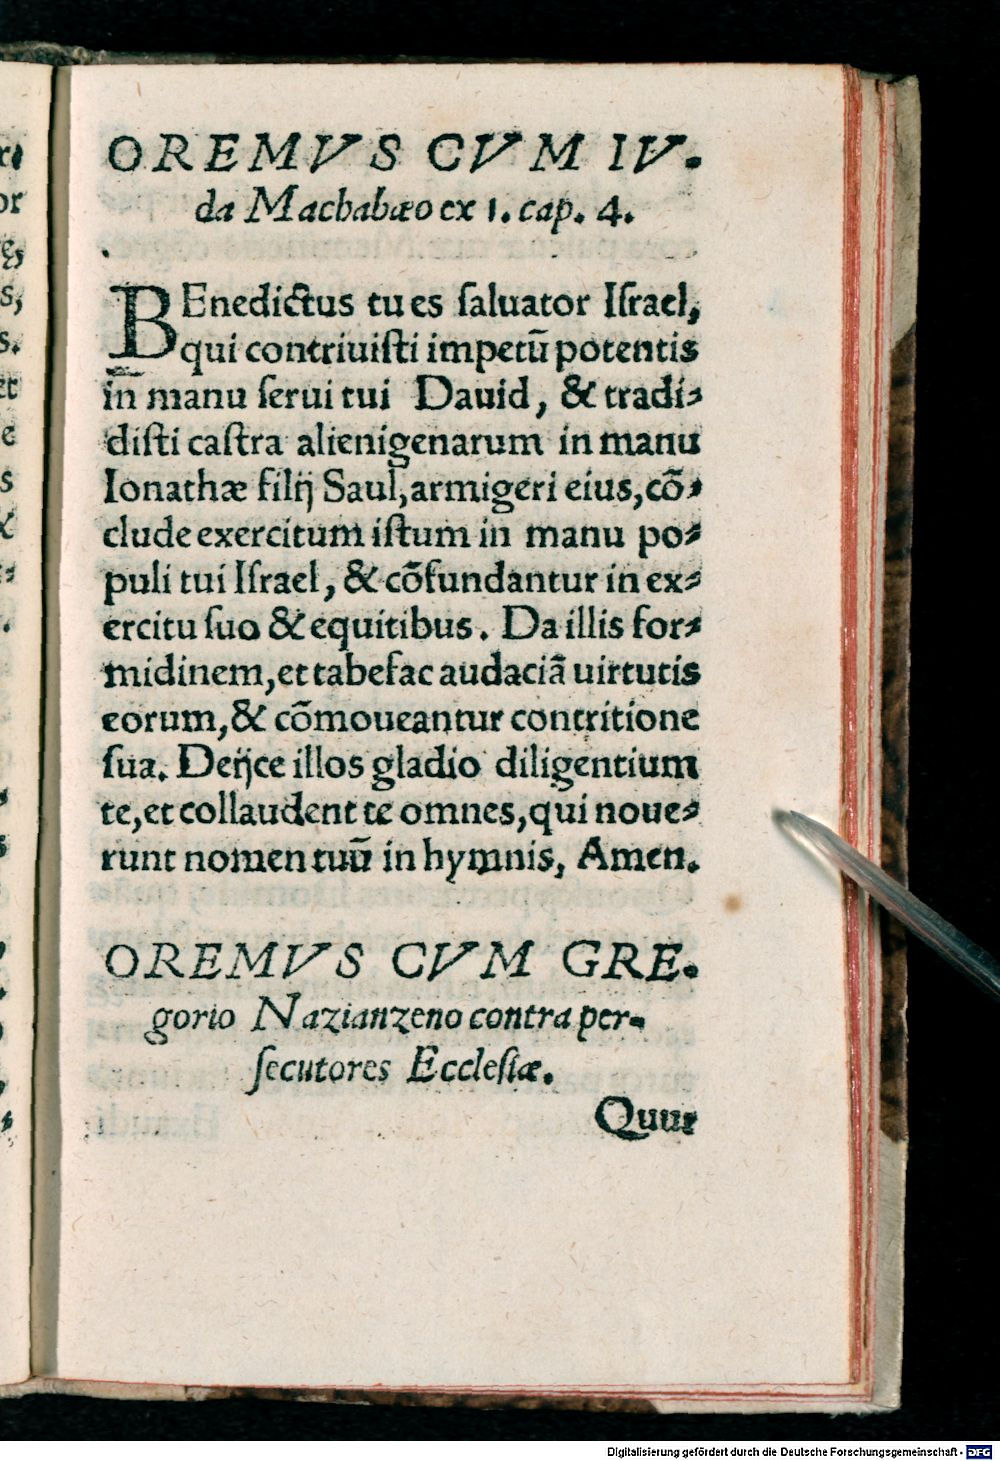 OREMVS CVM IV.
da Machabæo ex 1. cap. 4.
BEnedictus tu es ſaluator Iſrael,
qui contriuiſti impetū potentis
in manu ſerui tui Dauid, & tradi⸗
diſti caſtra alienigenarum in manu
Ionathæ filij Saul, armigeri eius, cō⸗
clude exercitum iſtum in manu po⸗
puli tui Iſrael, & cōfundantur in ex⸗
ercitu ſuo & equitibus. Da illis for⸗
midinem, et tabefac audaciā uirtutis
eorum, & cōmoueantur contritione
ſua. Deijce illos gladio diligentium
te, et collaudent te omnes, qui noue⸗
runt nomen tuū in hymnis, Amen.
OREMVS CVM GRE.
gorio Nazianzeno contra per-
ſecutores Eccleſiæ.
Quur
Digitalisierung gefördert durch die Deutsche Forschungsgemeinschaft - DFG